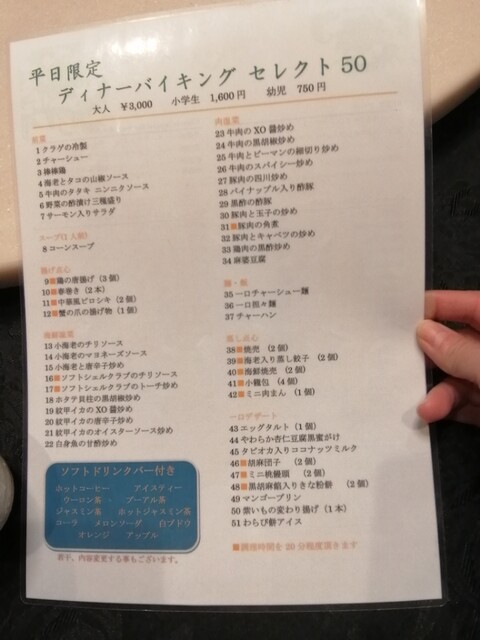 平日限定
ディナーバイキング セレクト50
大人 ¥3,000 小学生 1,600円 幼児 750円
前菜
1 クラゲの冷製
2 チャーシュー
3 棒棒鶏
4 海老とタコの山椒ソース
5 牛肉のタタキ ニンニクソース
6 野菜の酢漬け三種盛り
7 サーモン入りサラダ
スープ(1人前)
8 コーンスープ
揚げ点心
9■鶏の唐揚げ(3個)
10■春巻き(2本)
11■中華風ピロシキ(2個)
12■蟹の爪の揚げ物(1個)
海鮮温菜
13 小海老のチリソース
14 小海老のマヨネーズソース
15 小海老と唐辛子炒め
16■ソフトシェルクラブのチリソース
17■ソフトシェルクラブのトーチ炒め
18 ホタテ貝柱の黒胡椒炒め
19 紋甲イカのXO醤炒め
20 紋甲イカの唐辛子炒め
21 紋甲イカのオイスターソース炒め
22 白身魚の甘酢炒め
ソフトドリンクバー付き
ホットコーヒー アイスティー
ウーロン茶 プーアル茶
ジャスミン茶 ホットジャスミン茶
コーラ メロンソーダ 白ブドウ
オレンジ アップル
若干、内容変更する事もございます。
肉温菜
23 牛肉のXO醤炒め
24 牛肉の黒胡椒炒め
25 牛肉とピーマンの細切り炒め
26 牛肉のスパイシー炒め
27 豚肉の四川炒め
28 パイナップル入り酢豚
29 黒酢の酢豚
30 豚肉と玉子の炒め
31■豚肉の角煮
32 豚肉とキャベツの炒め
33 鶏肉の黒酢炒め
34 麻婆豆腐
麺・飯
35 一口チャーシュー麺
36 一口担々麺
37 チャーハン
蒸し点心
38■焼売(2個)
39■海老入り蒸し餃子(2個)
40■海鮮焼売(2個)
41■小籠包(4個)
42■ミニ肉まん(1個)
一口デザート
43 エッグタルト(1個)
44 やわらか杏仁豆腐黒蜜がけ
45 タピオカ入りココナッツミルク
46■胡麻団子(2個)
47■ミニ桃饅頭(2個)
48■黒胡麻餡入りきな粉餅(2個)
49 マンゴープリン
50 紫いもの変わり揚げ(1本)
51 わらび餅アイス
■調理時間を20分程度頂きます